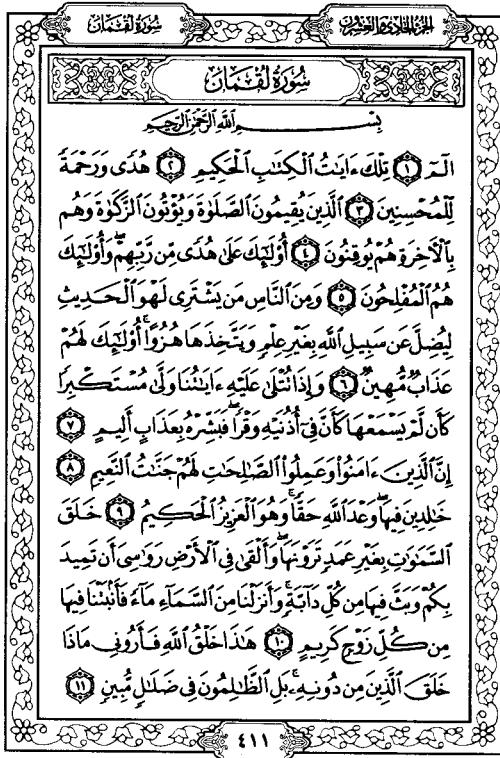 الجزء الحادي والعشرون
سورة لقمان
سُورَةُ لُقْمَانَ
بِسْمِ اللَّهِ الرَّحْمَٰنِ الرَّحِيمِ
الٓمٓ ١ تِلْكَ ءَايَٰتُ ٱلْكِتَٰبِ ٱلْحَكِيمِ ٢ هُدًى وَرَحْمَةً
لِّلْمُحْسِنِينَ ٣ ٱلَّذِينَ يُقِيمُونَ ٱلصَّلَوٰةَ وَيُؤْتُونَ ٱلزَّكَوٰةَ وَهُم
بِٱلْأَخِرَةِ هُمْ يُوقِنُونَ ٤ أُوْلَٰٓئِكَ عَلَىٰ هُدًى مِّن رَّبِّهِمْۖ وَأُوْلَٰٓئِكَ
هُمُ ٱلْمُفْلِحُونَ ٥ وَمِنَ ٱلنَّاسِ مَن يَشْتَرِى لَهْوَ ٱلْحَدِيثِ
لِيُضِلَّ عَن سَبِيلِ ٱللَّهِ بِغَيْرِ عِلْمٍ وَيَتَّخِذَهَا هُزُوًاۚ أُوْلَٰٓئِكَ لَهُمْ
عَذَابٌ مُّهِينٌ ٦ وَإِذَا تُتْلَىٰ عَلَيْهِ ءَايَٰتُنَا وَلَّىٰ مُسْتَكْبِرًا
كَأَن لَّمْ يَسْمَعْهَا كَأَنَّ فِىٓ أُذُنَيْهِ وَقْرًاۖ فَبَشِّرْهُ بِعَذَابٍ أَلِيمٍ ٧
إِنَّ ٱلَّذِينَ ءَامَنُوا۟ وَعَمِلُوا۟ ٱلصَّٰلِحَٰتِ لَهُمْ جَنَّٰتُ ٱلنَّعِيمِ ٨
خَٰلِدِينَ فِيهَاۖ وَعْدَ ٱللَّهِ حَقًّاۚ وَهُوَ ٱلْعَزِيزُ ٱلْحَكِيمُ ٩ خَلَقَ
ٱلسَّمَٰوَٰتِ بِغَيْرِ عَمَدٍ تَرَوْنَهَاۖ وَأَلْقَىٰ فِى ٱلْأَرْضِ رَوَٰسِىَ أَن تَمِيدَ
بِكُمْ وَبَثَّ فِيهَا مِن كُلِّ دَآبَّةٍۚ وَأَنزَلْنَا مِنَ ٱلسَّمَآءِ مَآءً فَأَنۢبَتْنَا فِيهَا
مِن كُلِّ زَوْجٍ كَرِيمٍ ١٠ هَٰذَا خَلْقُ ٱللَّهِ فَأَرُونِى مَاذَا
خَلَقَ ٱلَّذِينَ مِن دُونِهِۦۚ بَلِ ٱلظَّٰلِمُونَ فِى ضَلَٰلٍ مُّبِينٍ ١١
٤١١